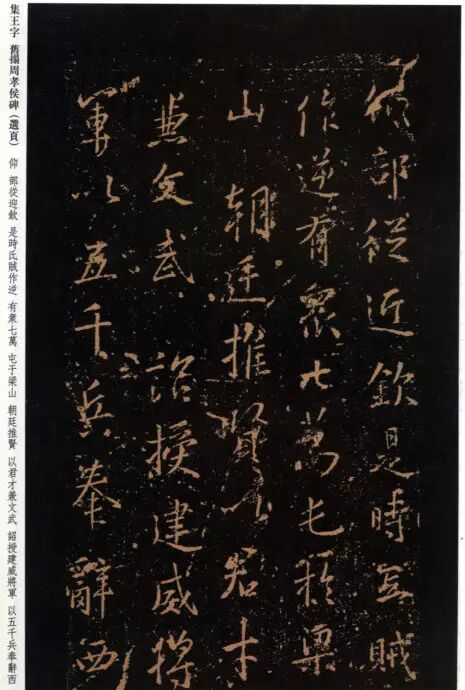 集王字 舊搨周孝侯碑（選頁） 仰 部從迎欽 是時氐賊作逆 有衆七萬 屯于梁山 朝廷推賢 以君才兼文武 詔授建威將軍 以五千兵奉辭西
仰部從迎欽是時氐賊
作逆有衆七萬屯於梁
山 朝廷推賢以君才
兼文武 詔授建威將
軍以五千兵奉辭西